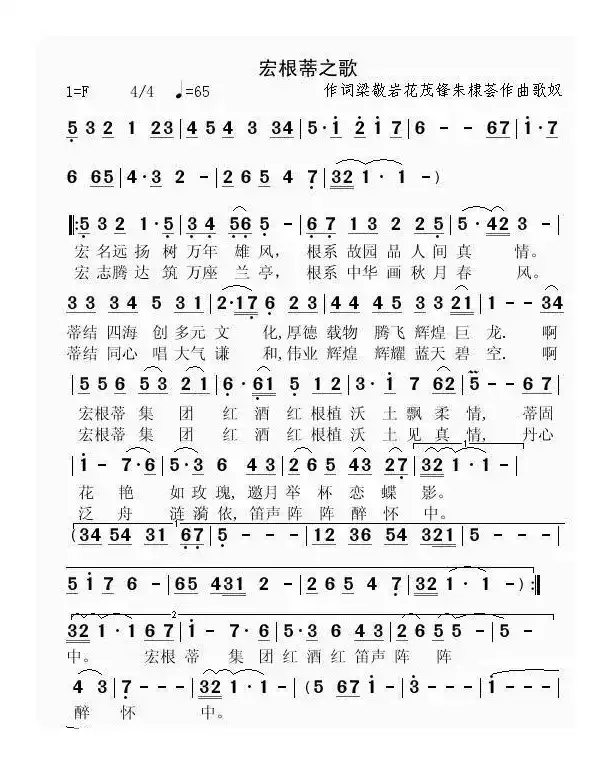 宏根蒂之歌
1=F 4/4 ♩=65 作词梁敬岩花茂锋朱棣荟作曲歌奴
5 3 2 1 23|4 54 3 34|5·1 2 17|6 - - 67|1·7
6 65|4·3 2 -|2 65 4 7|321· 1 -)
‖:5 32 1·5|34 56 5 -|67 13 2 25|5·42 3 -|
宏名远扬树万年雄风，根系故园品人间真情。
宏志腾达筑万座兰亭，根系中华画秋月春风。
33 34 5 31|2·17 6 23|44 45 33 21|1 - - 34
蒂结四海创多元文化,厚德载物腾飞辉煌巨龙.啊
蒂结同心唱大气谦和,伟业辉煌辉耀蓝天碧空.啊
|5 56 53 21|6·61 5 12|3·1 7 62|5 - - 67
宏根蒂集团红酒红根植沃土飘柔情,蒂固
宏根蒂集团红酒红根植沃土见真情,丹心
|1 - 7·6|5·3 6 43|2 65 43 27|321·1 - -|
花艳如玫瑰,邀月举杯恋蝶影。
泛舟涟漪依,笛声阵阵醉怀中。
(34 54 31 67|5 - - -|12 36 54 321|5 - - -
5 17 6 -|65 431 2 -|265 4 7|321·1 -):‖
321·1 67|1 - 7·6|5·3 6 43|2 655 -|5 - -
中。宏根蒂集团红酒红笛声阵阵
4 3|7 - - -|321·1 -|(5 67 1 -|3 - - -|1 - - -
醉怀中。